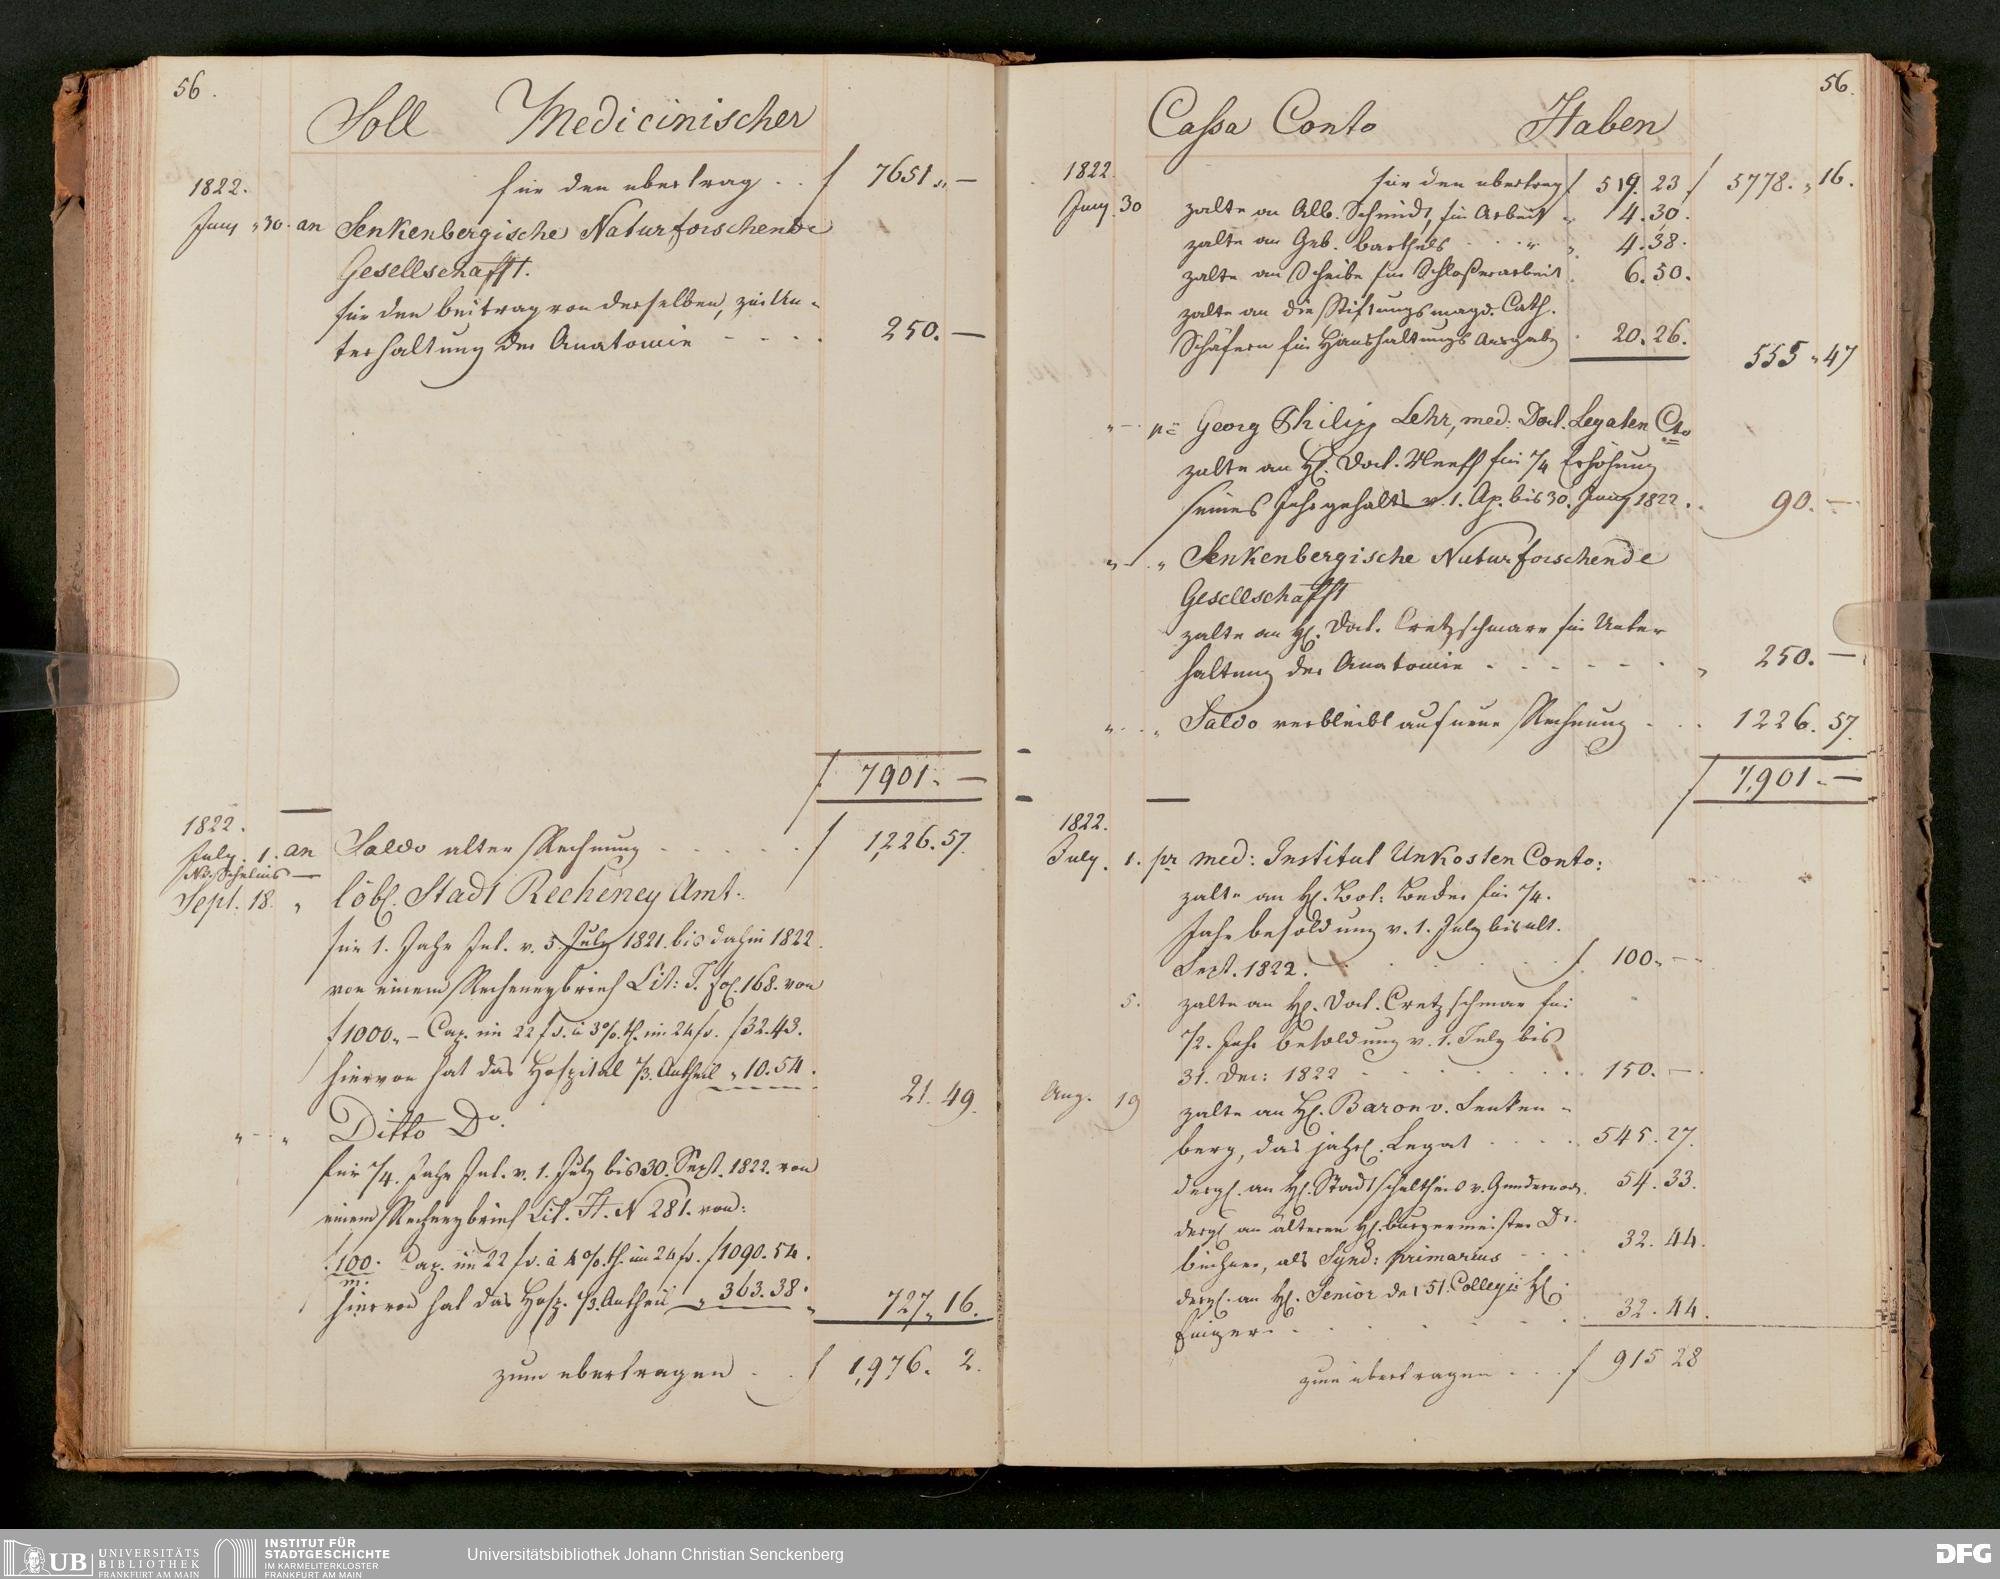 56.
Soll Medicinischer
1822.
für den ubertrag . . f 7651 „ —
Juny „ 30. an Senkenbergische Naturforschende
Gesellschafft.
für den beitrag von derselben, zur Un-
terhaltung der Anatomie - - - . 250. —
f 7901. —
1822.
July. 1. an Saldo alter Rechnung . . . . . f 1,226. 57.
Sept. 18. „ löbl. Stadt Recheney Amt.
für 1. Jahr Int. v. 5. July 1821. bis dahin 1822.
von einem Recheneybrief Lit: T. fol. 168. von
f 1000. – Cap. im 22 f. à 3%. th. im 24 f. f 32.43.
hiervon hat das Hospital 1/3. Antheil „ 10.54. 21. 49.
„ – „ Ditto Do.
für 1/4. Jahr Int. v. 1. July bis 30. Sept. 1822. von
einem Recheneybrief Lit. H. N 281. von:
f 100. Cap. im 22 f. à 4%. th. im 24 f. f 1090.54.
m.
hiervon hat das Hosp. 1/3. Antheil „ 363.38. „ 727. 16.
zum ubertragen . . f 1,976. 2.
56.
Cassa Conto Haben
1822.
für den ubertrag f 519. 23 f 5778. „ 16.
Juny. 30 zalte an Alb. Schmidt, für Arbeit „ 4. 30.
zalte an Geb. Barthels . . . „ „ 4. 38.
zalte an Scheibe für Schloßerarbeit . 6. 50.
zalte an die Stiftungsmagd. Cath.
Schäfern für Haushaltungs Ausgabe . 20. 26.
555 „ 47
„ – . pr Georg Philipp Lehr, med: Doct. Legaten Cto
zalte an H. Doct. Neeff für 1/4 Erhöhung
seines Jahrgehalts v. 1. Ap. bis 30. Juny 1822. . 90. —
„ – . „ Senkenbergische Naturforschende
Gesellschafft
zalte an H. Doct. Cretzschmare für Unter
haltung der Anatomie . - - - - - . „ 250. —
„ . . „ Saldo verbleibt auf neue Rechnung . . . 1226. 57.
f 7,901. —
1822.
July. 1. pr med: Institut Unkosten Conto:
zalte an H. für 1/4.
Jahr besoldung v. 1. July bis ult.
Sept. 1822. . . . . f. 100. –
5. zalte an H. Doct. Cretzschmar für
1/2. Jahr besoldung v. 1. July bis
31. Dec: 1822 . . . . . . 150. —
Aug. 19 zalte an H. Baron v. Senken-
berg, das jährl. Legat . . . . 545. 27.
dergl. an H. Stadtschultheis v. Günderrode. 54. 33.
dergl. an älteren H. burgermeister Dr.
büchner, als Synd: primarius . . . 32. 44.
dergl. an H. Senior der 51. Collegii H.
. . . . . . 32. 44.
zum ubertragen . . . f 915 28
UB UNIVERSITÄTS
BIBLIOTHEK
FRANKFURT AM MAIN
INSTITUT FÜR
STADTGESCHICHTE
IM KARMELITERKLOSTER
FRANKFURT AM MAIN
Universitätsbibliothek Johann Christian Senckenberg
DFG